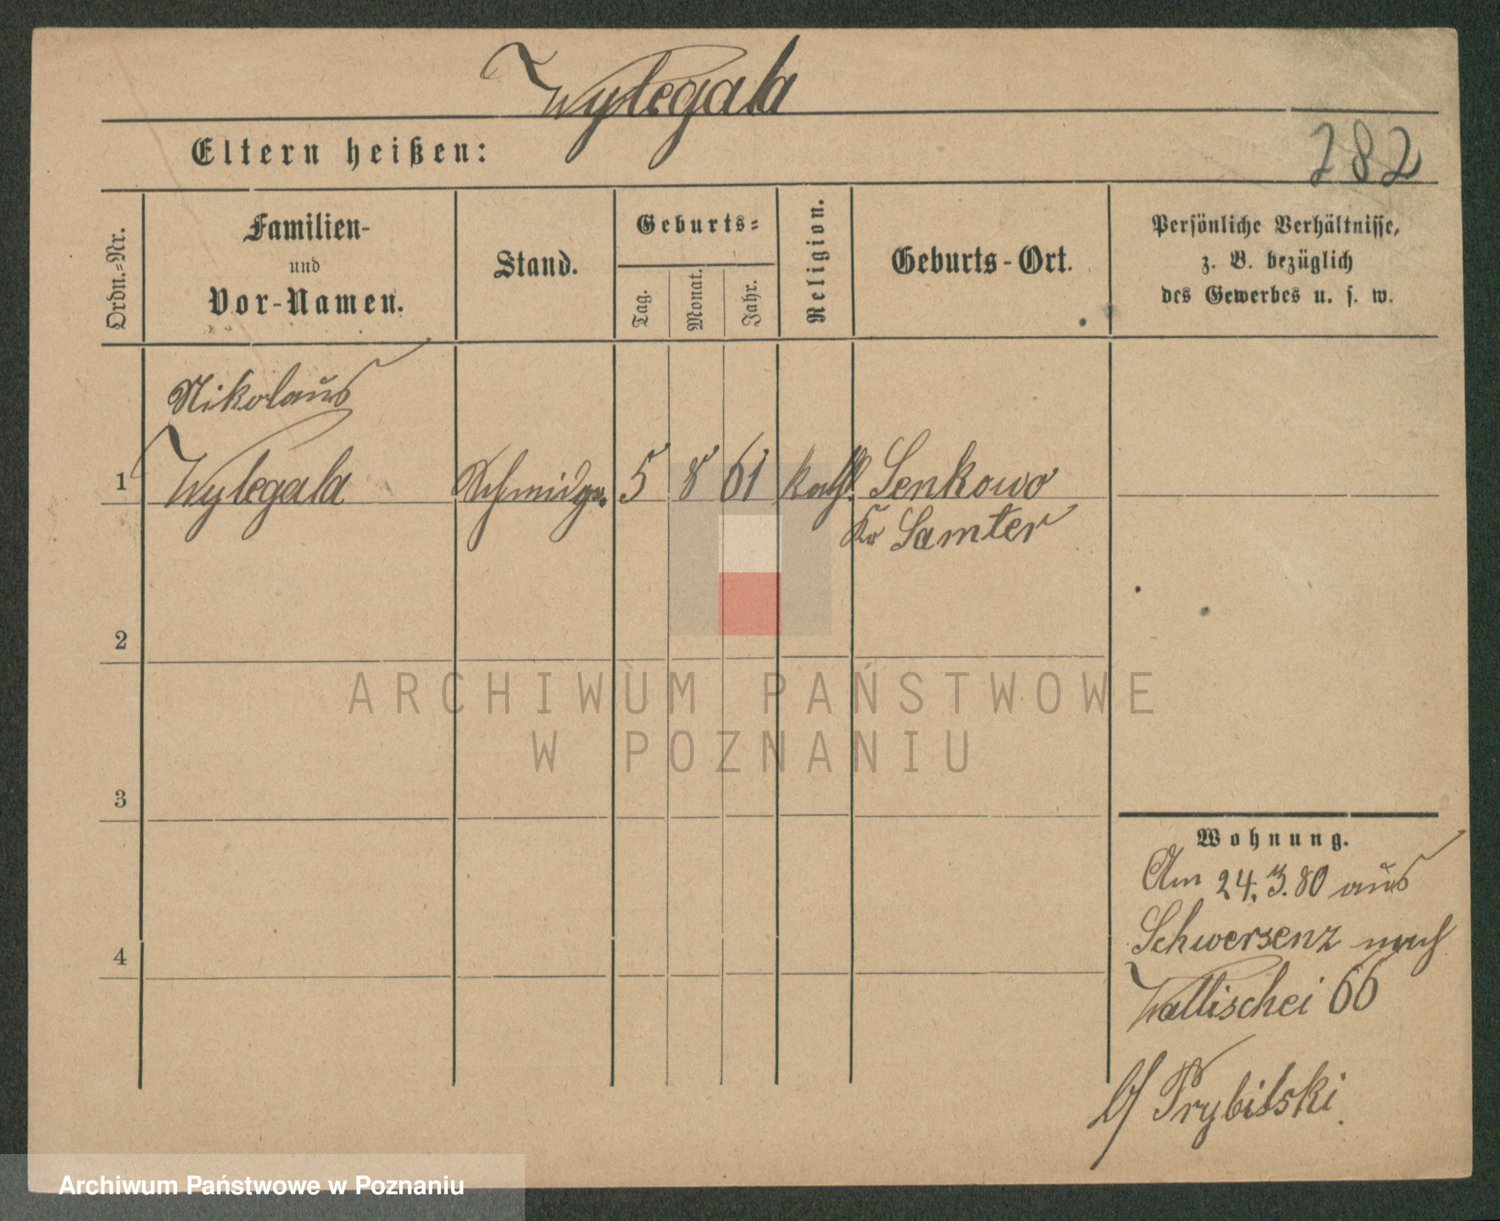 Wylegala
Eltern heißen:
282
Ordn.=Nr.
Familien-
und
Vor-Namen.
Stand.
Geburts=
Tag.
Monat.
Jahr.
Religion.
Geburts-Ort.
Persönliche Verhältnisse,
z. B. bezüglich
des Gewerbes u. s. w.
Nikolaus
1 Wylegala Schmidges. 5 8 61 kath. Senkowo
Kr Samter
2
ARCHIWUM PAŃSTWOWE
W POZNANIU
3
Wohnung.
Am 24.3.80 aus
Schwersenz nach
4
Wallischei 66
b/ Prybilski
Archiwum Państwowe w Poznaniu